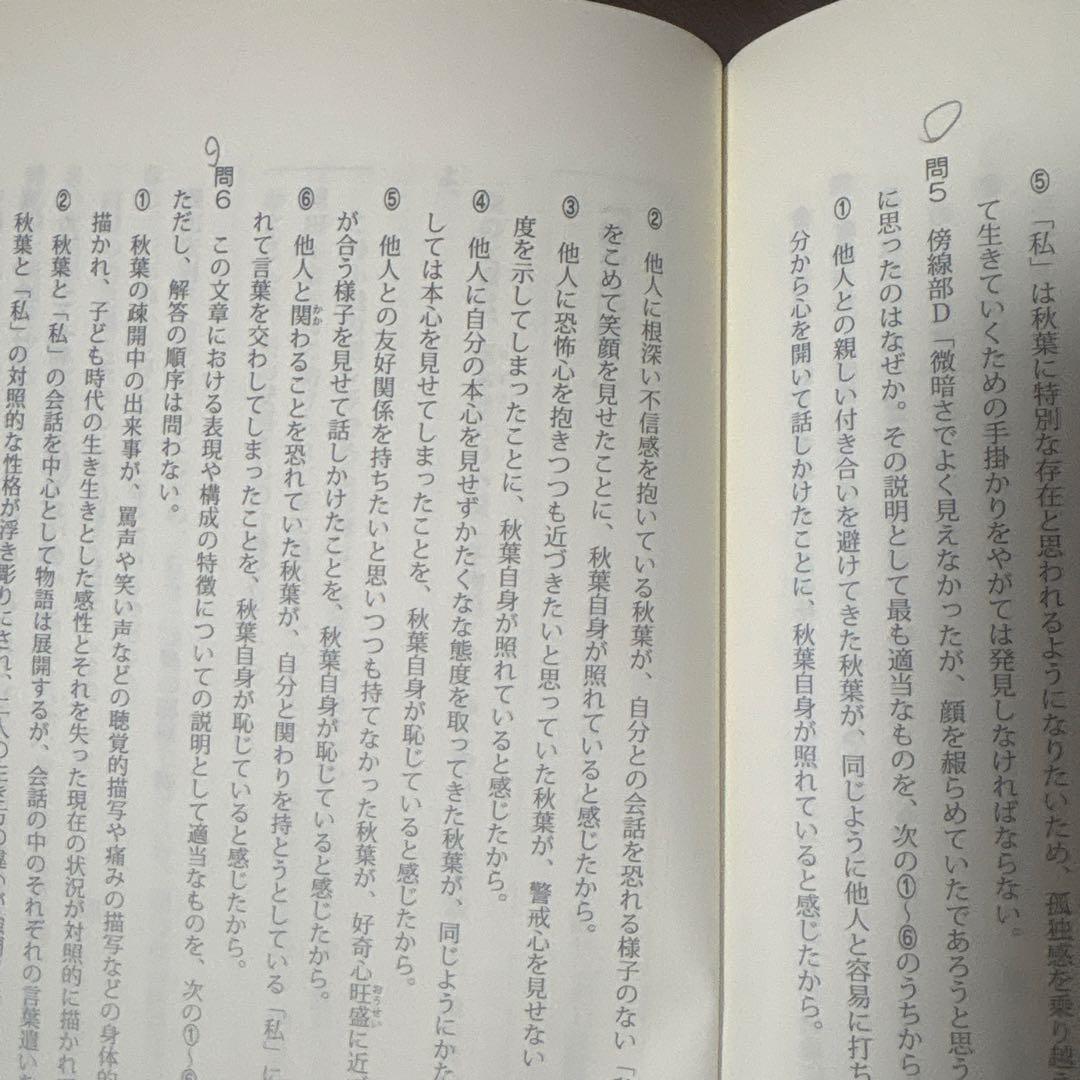 ⑤　「私」は秋葉に特別な存在と思われるようになりたいため、孤独感を乗り越
て生きていくための手掛かりをやがては発見しなければならない。
問５　傍線部Ｄ「微暗さでよく見えなかったが、顔を赧らめていたであろうと思う
に思ったのはなぜか。その説明として最も適当なものを、次の①～⑥のうちから
①　他人との親しい付き合いを避けてきた秋葉が、同じように他人と容易に打ち
分から心を開いて話しかけたことに、秋葉自身が照れていると感じたから。
②　他人に根深い不信感を抱いている秋葉が、自分との会話を恐れる様子のない「
をこめて笑顔を見せたことに、秋葉自身が照れていると感じたから。
③　他人に恐怖心を抱きつつも近づきたいと思っていた秋葉が、警戒心を見せない
度を示してしまったことに、秋葉自身が照れていると感じたから。
④　他人に自分の本心を見せずかたくなな態度を取ってきた秋葉が、同じようにかた
しては本心を見せてしまったことを、秋葉自身が恥じていると感じたから。
⑤　他人との友好関係を持ちたいと思いつつも持てなかった秋葉が、好奇心旺盛おうせいに近
が合う様子を見せて話しかけたことを、秋葉自身が恥じていると感じたから。
⑥　他人と関かかわることを恐れていた秋葉が、自分と関わりを持とうとしている「私」に
れて言葉を交わしてしまったことを、秋葉自身が恥じていると感じたから。
9
問６　この文章における表現や構成の特徴についての説明として適当なものを、次の①～⑥
ただし、解答の順序は問わない。
①　秋葉の疎開中の出来事が、罵声や笑い声などの聴覚的描写や痛みの描写などの身体的
描かれ、子ども時代の生き生きとした感性とそれを失った現在の状況が対照的に描かれ
②　秋葉と「私」の会話を中心として物語は展開するが、会話の中のそれぞれの言葉遣い
秋葉と「私」の対照的な性格が浮き彫りにされ、二人の